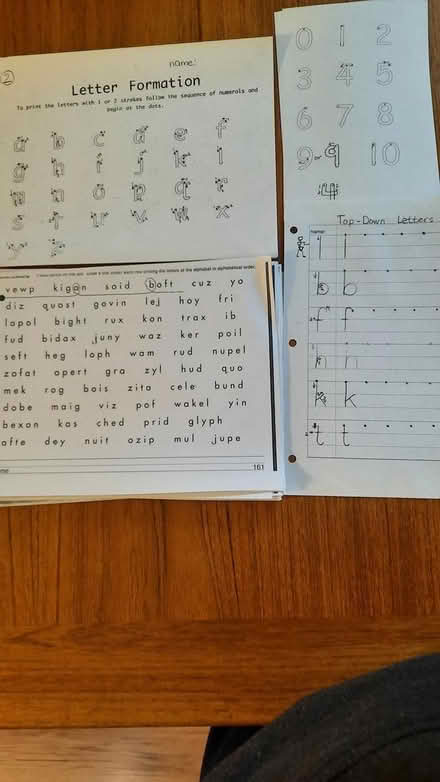 2
name:
Letter Formation
To print the letters with 1 or 2 strokes follow the sequence of numerals and
begin at the dots.
a b c d e f
g h i j k l
m n o p q r
s t u v w x
y z
0 1 2
3 4 5
6 7 8
9 or 9 10
4
Top-Down Letters
name:
l l
b b
f f
n n
k k
t t
vewp kigan soid boft cuz yo
diz quost govin lej hoy fri
lapol bight rux kon trax ib
fud bidax juny waz ker poil
seft heg loph wam rud nupel
zofat apert gra zyl hud quo
mek rog bois zita cele bund
dobe maig viz pof wakel yin
bexan kas ched prid glyph
afte dey nuit ozip mul jupe
me
161